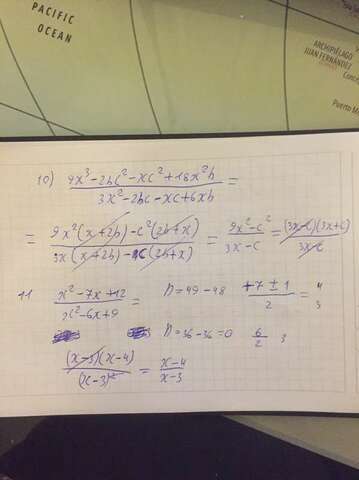 PACIFIC
OCEAN
ARCHIPIÉLAGO
JUAN FERNÁNDEZ
Puerto M
10) (9x³ - 2bc² - xc² + 18x²b) / (3x² - 2bc - xc + 6xb) =
= (9x²(x+2b) - c²(2b+x)) / (3x(x+2b) - c(2b+x)) = (9x² - c²) / (3x - c) = (3x-c)(3x+c) / (3x-c)
11 (x² - 7x + 12) / (x² - 6x + 9) = D = 49 - 48 (+7 ± 1) / 2 = 4 3
D = 36 - 36 = 0 6/2 3
(x-3)(x-4) / (x-3)² = (x-4) / (x-3)